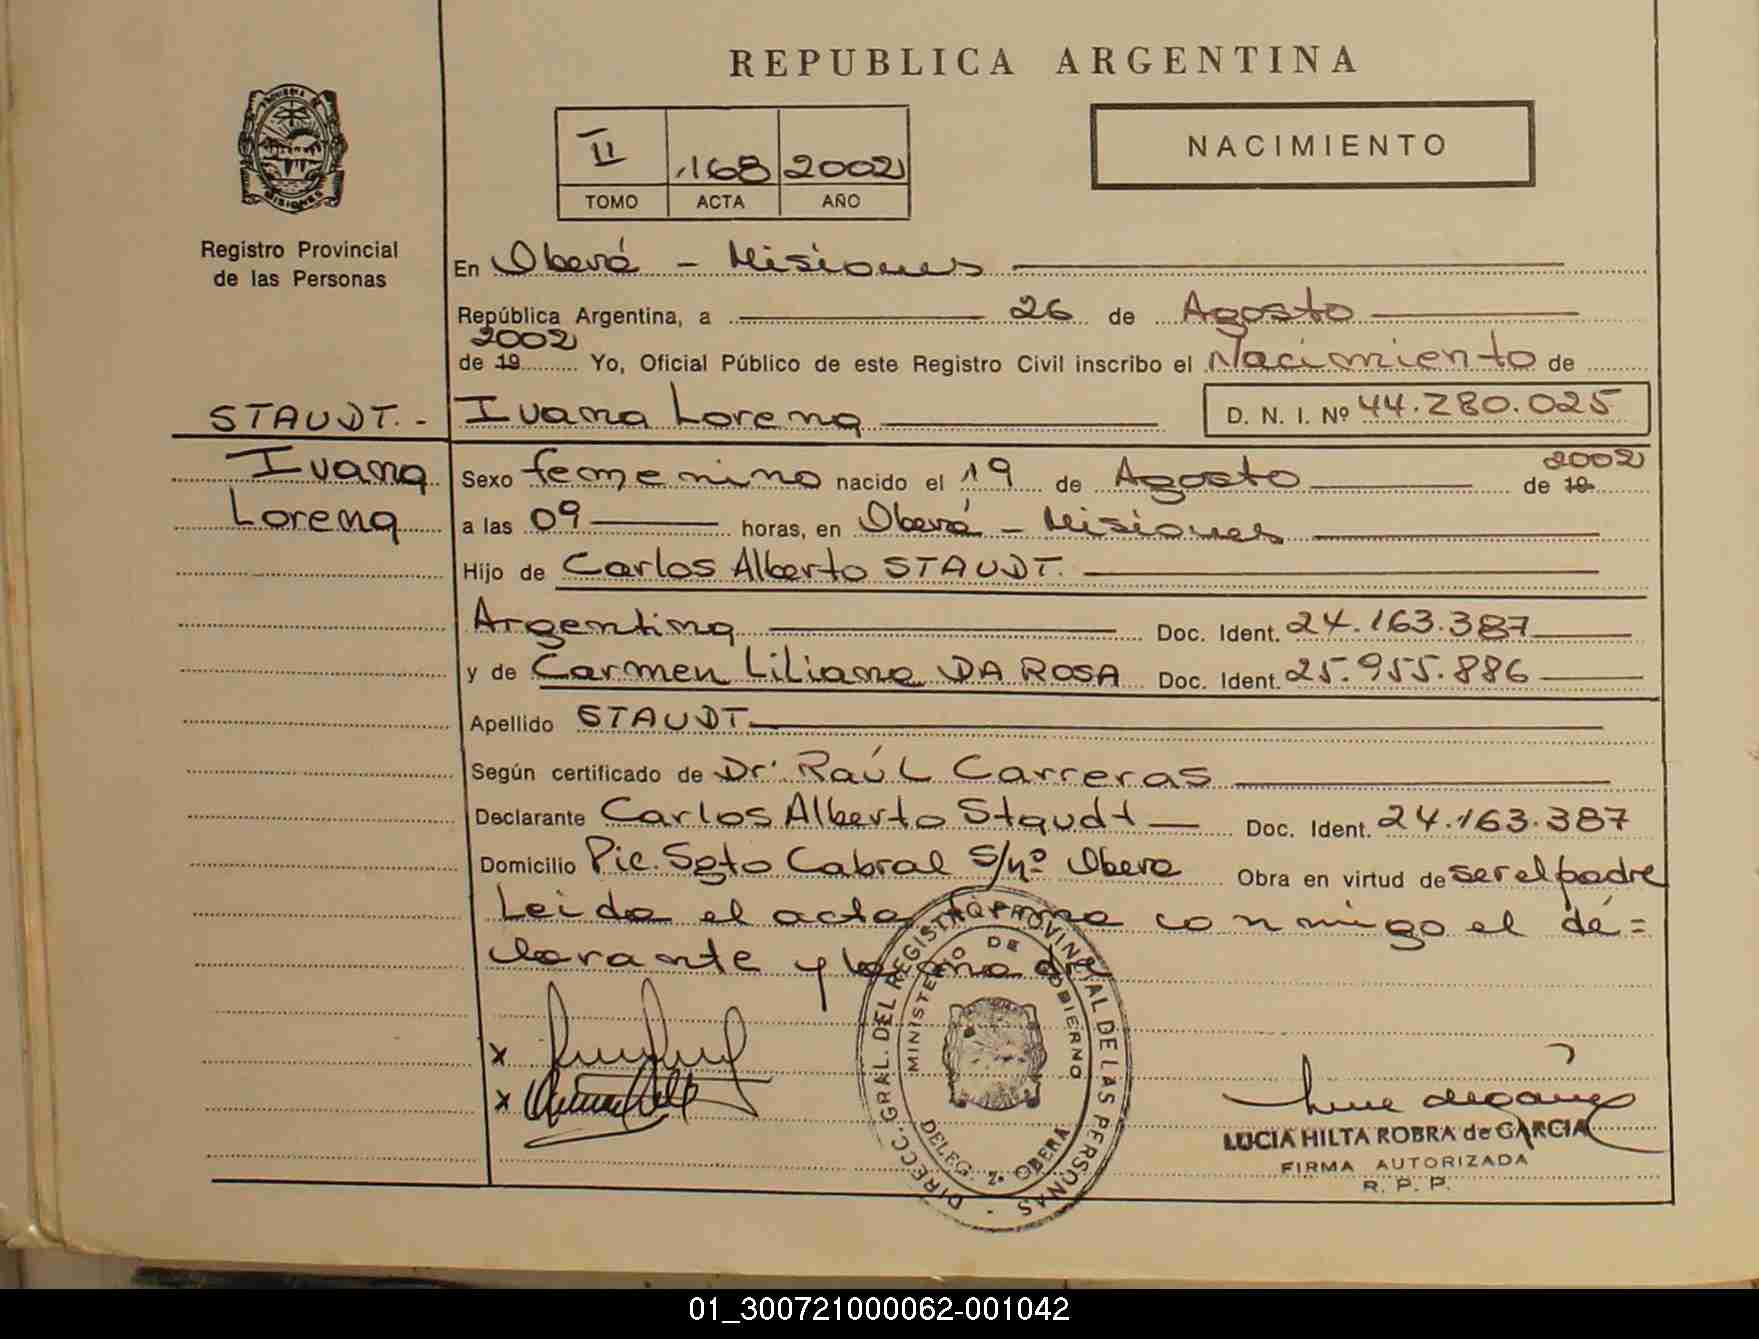 REPUBLICA ARGENTINA
PROVINCIA DE
MISIONES
II 168 2002
TOMO ACTA AÑO
NACIMIENTO
Registro Provincial
de las Personas
En Oberá - Misiones
República Argentina, a 26 de Agosto
2002
de 19 Yo, Oficial Público de este Registro Civil inscribo el Nacimiento de
STAUDT.- Ivana Lorena D. N. I. Nº 44.280.025
Ivana
Lorena
2002
Sexo femenino nacido el 19 de Agosto de 19
a las 09 horas, en Oberá - Misiones
Hijo de Carlos Alberto STAUDT.
Argentina Doc. Ident. 24.163.387
y de Carmen Liliana DA ROSA Doc. Ident. 25.955.886
Apellido STAUDT
Según certificado de Dr. Raúl Carreras
Declarante Carlos Alberto Staudt Doc. Ident. 24.163.387
Domicilio Pic. Sgto Cabral S/nº Obera Obra en virtud de ser el padre
Leida el acta firma conmigo el de=
clarante y la madre
x
x
DIRECC. GRAL. DEL REGISTRO PROVINCIAL DE LAS PERSONAS -
MINISTERIO DE GOBIERNO
DELEG. 2ª OBERA
LUCIA HILTA ROBRA de GARCIA
FIRMA AUTORIZADA
R. P. P.
01_300721000062-001042